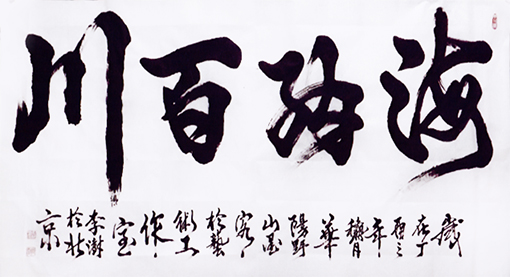 海納百川
歲在丁酉之年穐月華陽野山墨客於藝術工作室李澍於北京